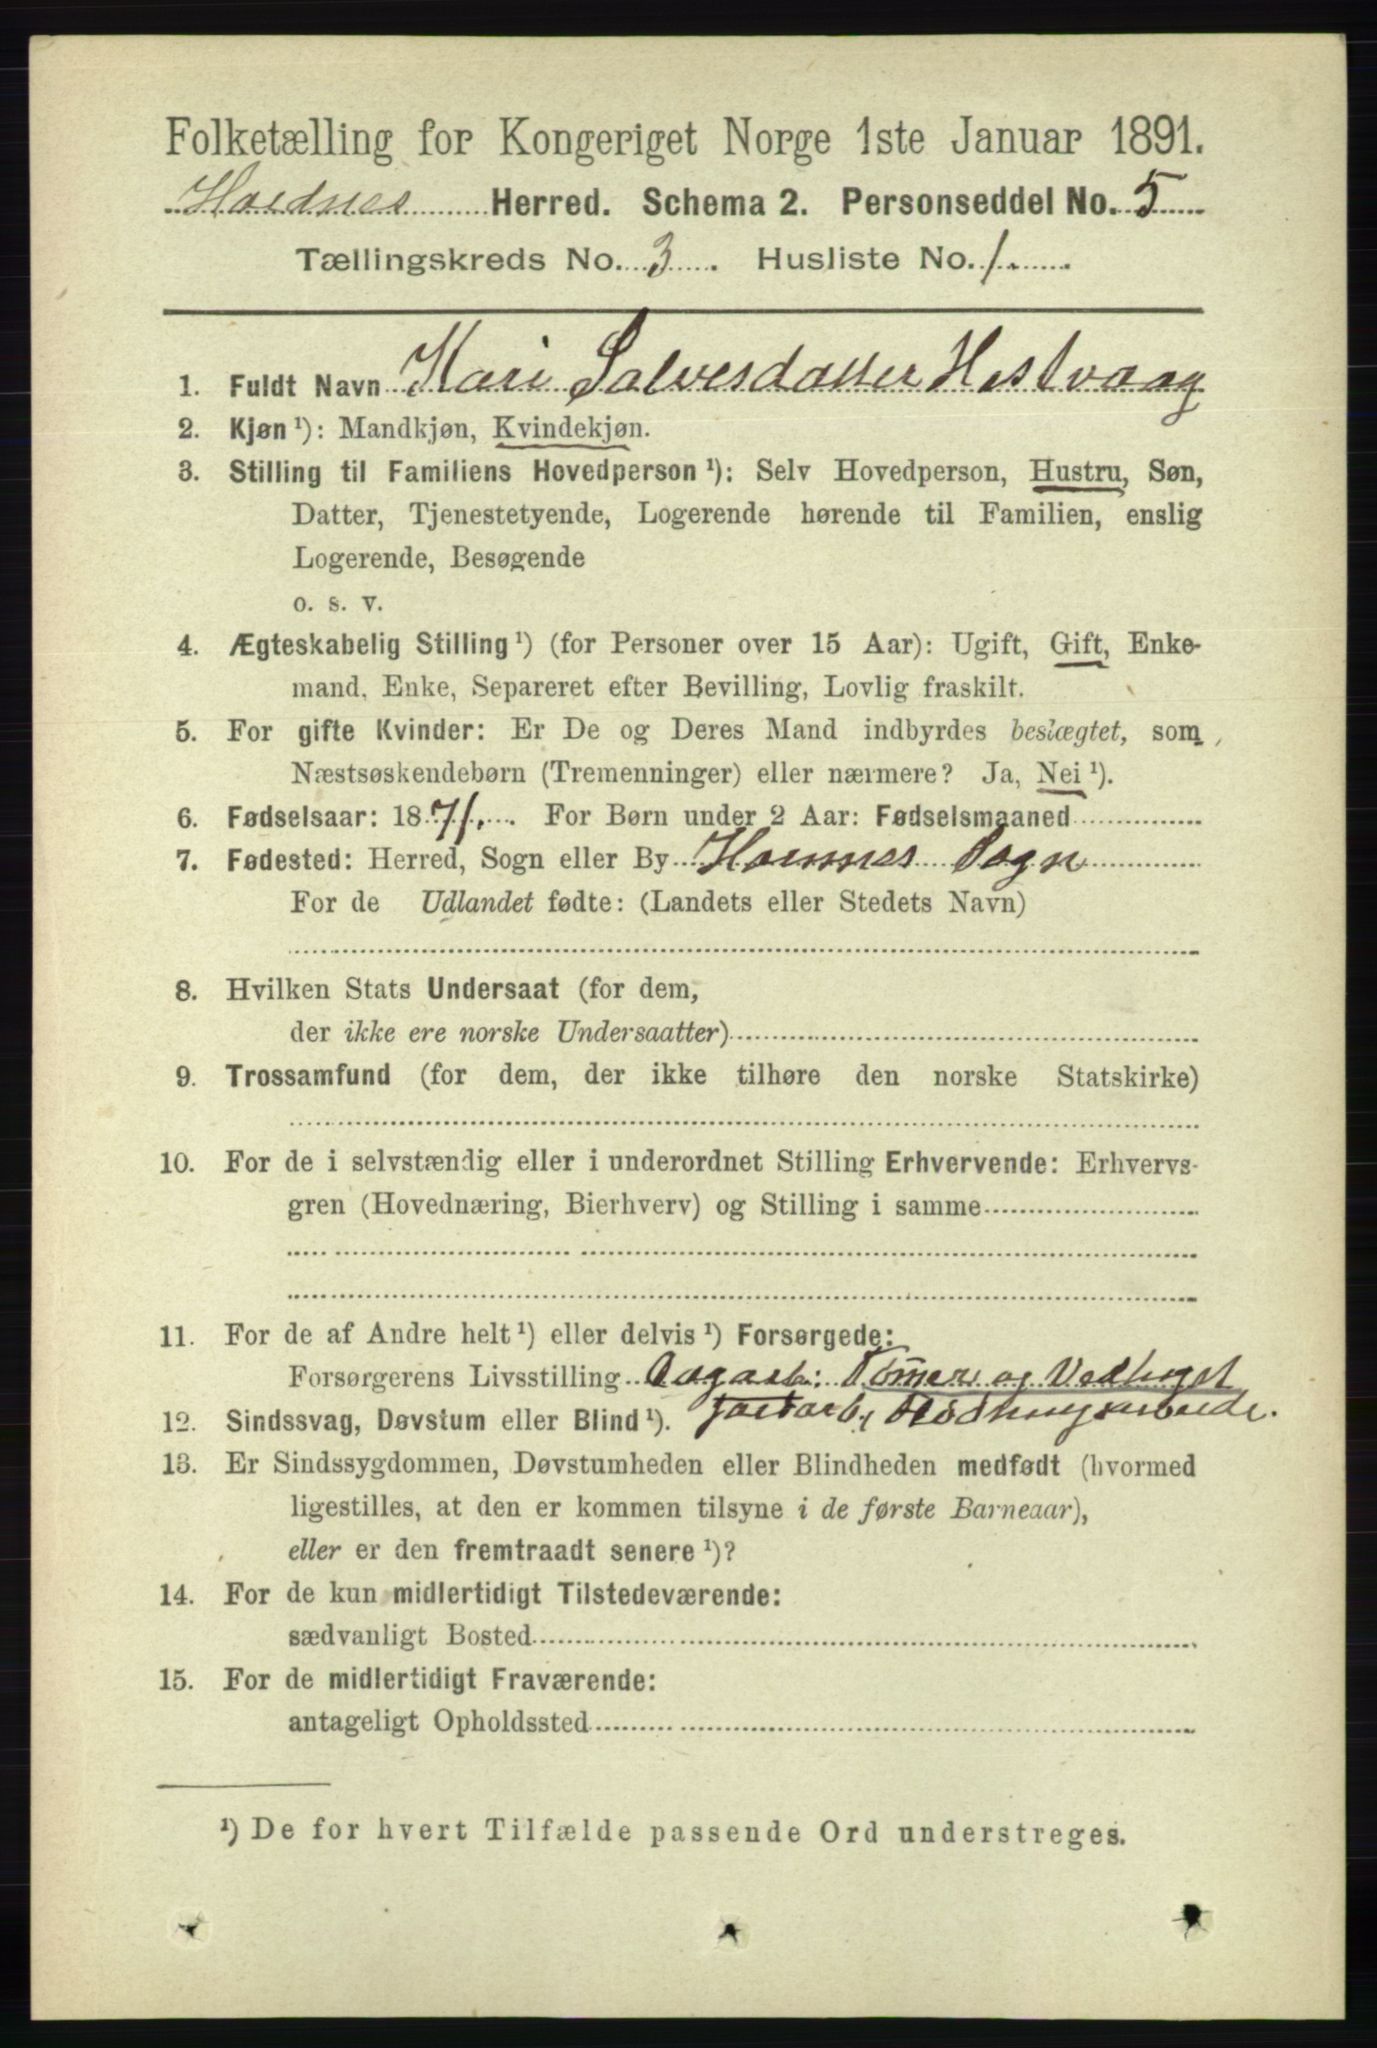 Folketælling for Kongeriget Norge 1ste Januar 1891.
Hordnes Herred. Schema 2. Personseddel No. 5
Tællingskreds No. 3. Husliste No. 1.
1. Fuldt Navn Kari Salvesdatter Hestvaag
2. Kjøn ¹): Mandkjøn, Kvindekjøn.
3. Stilling til Familiens Hovedperson ¹): Selv Hovedperson, Hustru, Søn,
Datter, Tjenestetyende, Logerende hørende til Familien, enslig
Logerende, Besøgende
o. s. v.
4. Ægteskabelig Stilling ¹) (for Personer over 15 Aar): Ugift, Gift, Enke-
mand, Enke, Separeret efter Bevilling, Lovlig fraskilt.
5. For gifte Kvinder: Er De og Deres Mand indbyrdes beslægtet, som
Næstsøskendebørn (Tremenninger) eller nærmere? Ja, Nei ¹).
6. Fødselsaar: 1871. For Børn under 2 Aar: Fødselsmaaned
7. Fødested: Herred, Sogn eller By Hornnes Sogn
For de Udlandet fødte: (Landets eller Stedets Navn)
8. Hvilken Stats Undersaat (for dem,
der ikke ere norske Undersaatter)
9. Trossamfund (for dem, der ikke tilhøre den norske Statskirke)
10. For de i selvstændig eller i underordnet Stilling Erhvervende: Erhvervs-
gren (Hovednæring, Bierhverv) og Stilling i samme
11. For de af Andre helt ¹) eller delvis ¹) Forsørgede:
Forsørgerens Livsstilling Dagarb: Tømer og Vedhugst
12. Sindssvag, Døvstum eller Blind ¹). Jordarb, Flødningsarbeide.
13. Er Sindssygdommen, Døvstumheden eller Blindheden medfødt (hvormed
ligestilles, at den er kommen tilsyne i de første Barneaar),
eller er den fremtraadt senere ¹)?
14. For de kun midlertidigt Tilstedeværende:
sædvanligt Bosted
15. For de midlertidigt Fraværende:
antageligt Opholdssted
¹) De for hvert Tilfælde passende Ord understreges.